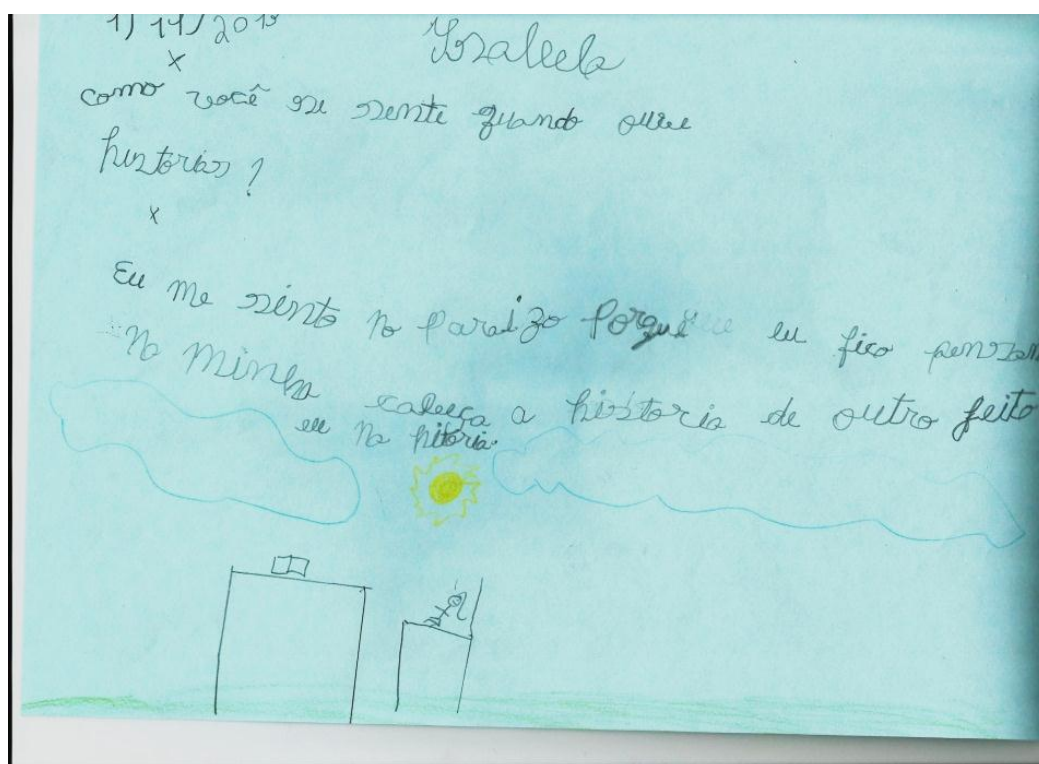 Isabela
x
como você se sente quando ouve
historias?
x
Eu me sinto no paraizo Porque eu fico pensan
na minha cabeça a historia de outro jeito
eu na hitoria.